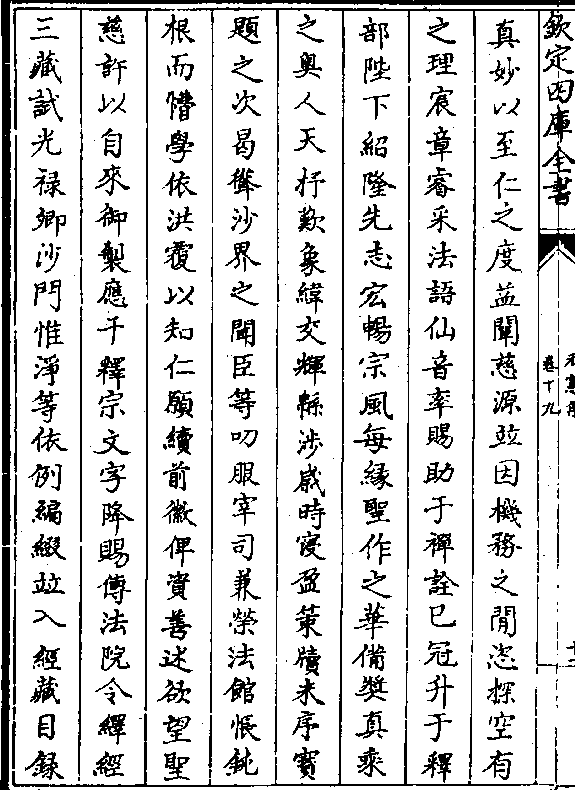 欽定四庫全書
卷十九
真妙以至仁之度益闡慈源並因機務之閒恣探空有
之理宸章睿采法語仙音率賜助于禪詮已冠升于釋
部陛下紹隆先志宏暢宗風每縁聖作之華備奬真乘
之奥人天抃歎象緯交輝縣渉嵗時寖盈策牘未序寳
題之次曷聳沙界之聞臣等叨服宰司兼榮法館悵鈍
根而懵學依洪覆以知仁願續前徽俾資善述欲望聖
慈許以自來御製應干釋宗文字降賜傳法院令繹經
三藏試光禄卿沙門惟淨等依例編綴並入經藏目録